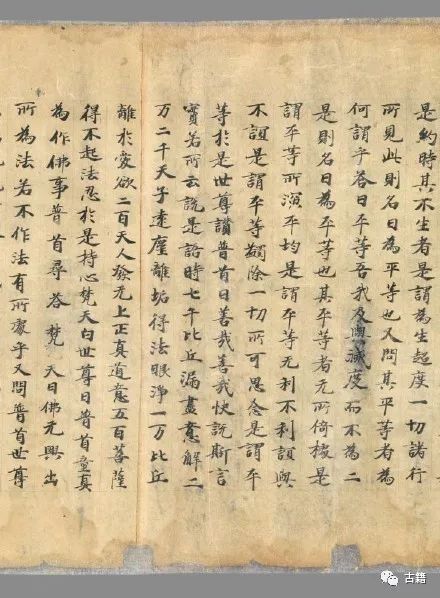 是約時其不生是謂為生起度一切諸行
所見此則名曰為平等也又問其平等者為
何謂乎荅曰平等吾我及與滅度而不為二
是則名曰為平等也其平等者无所倚據是
謂平等所演平均是謂平等无利不利誼與
不誼是謂平等蠲除一切所可思念是謂平
等於是世尊讃普首曰善哉善哉快說斯言
實若所云說是語時七千比丘漏盡意解二
万二千天子遠塵離垢得法眼淨一万比丘
離於愛欲二百天人發无上正真道意五百菩薩
得不起法忍於是持心梵天白世尊曰普首童真
為作佛事普首尋荅梵天曰佛无興出
所為法若不作法有所處乎又問普首世尊
古籍